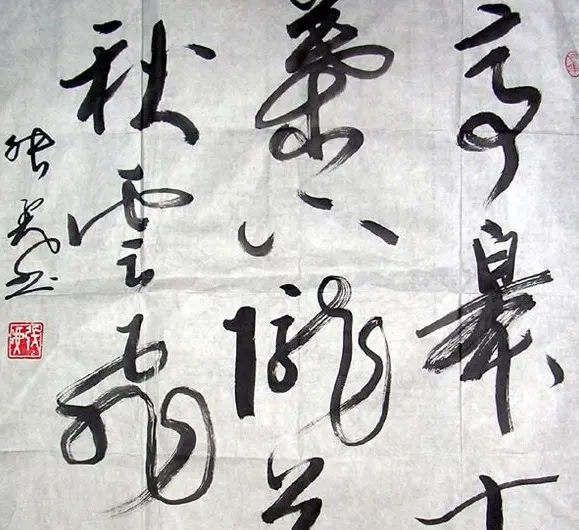 亭皋木
葉下隴首
秋雲飛
张書